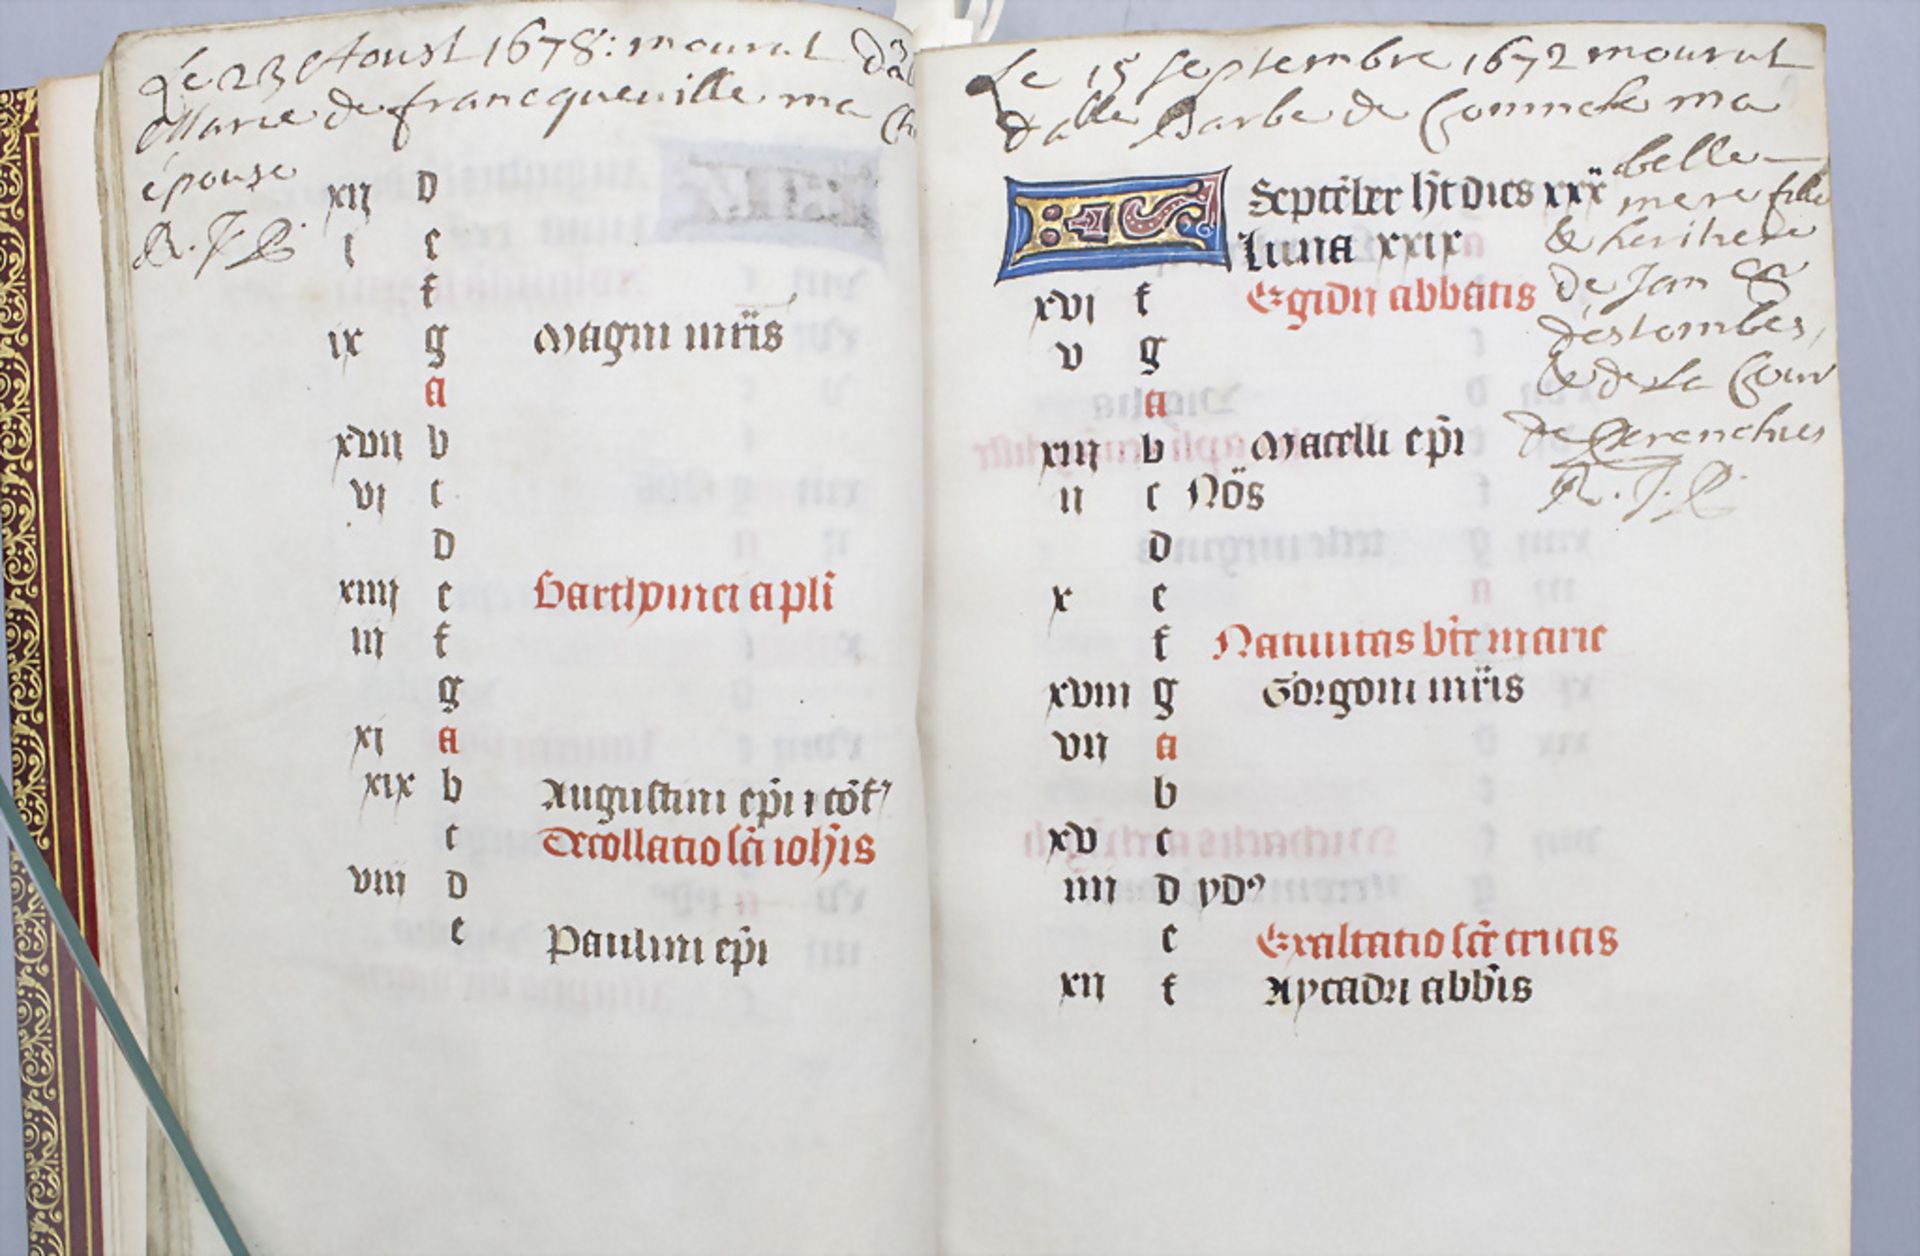 Le 23 Aoust 1678: mourut
Marie de francqueville ma
épouse
R. J. P.
xij d
i e
f
ix g Magni mr̄is
a
xvij b
vi c
d
xiiij e Barthomei apl̄i
iij f
g
xi a
xix b Augustini ep̄i ⁊ cōf
c Decollatio sc̄i ioh̄is
viij d
e Paulini ep̄i
Le 15 septembre 1672 mourut
dalle Barbe de ma
belle
mere fille
& heritiere
de Jan
destombes,
& de La
de
R. J. P.
KL Septēber h̄t dies xxx
Luna xxix
xvi f Egidij abbatis
v g
a
xiij b Marcelli ep̄i
ij c Nōs
d
x e
f Natiuitas bt̄e marie
xviij g Gorgoni mr̄is
vij a
b
xv c
iiij d yd⁹
e Exaltatio sc̄e crucis
xij f Aycadri abb̄is